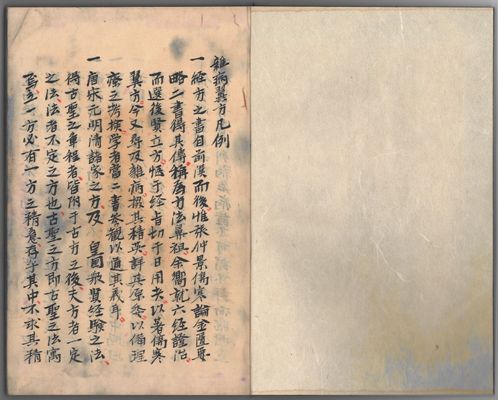 雜病翼方凡例
一經方之書自前漢而後惟張仲景傷寒論金匱要
略二書得其傳稱為方法鼻祖余嚮就六經證治
而選後賢立方恆于經旨切于日用者以著傷寒
翼方今又尋及雜病撰其精英詳其原委以備理
療之考按學者當二書參觀以通其義耳
一唐宋元明清諸家之方及 皇國叔賢經驗之法
得古聖之章程者皆附于古方之後夫方者一定
之法法者不定之方也古聖之方即古聖之法寓
焉立一方必有一方之精意存乎其中不求其精